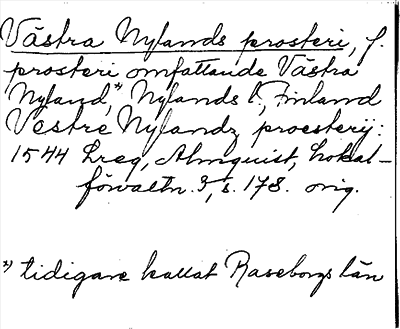 Västra Nylands prosteri, f.
prosteri omfattande Västra
Nyland,*) Nylands l., Finland
Vestre Nylandz proesterij:
1544 Lreg, Almquist, Lokal-
förvaltn. 3, s. 178. orig.
*) tidigare kallat Raseborgs län